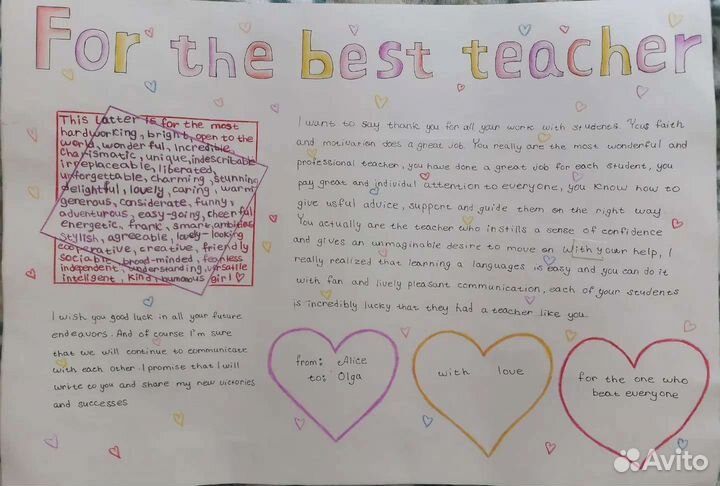 For the best teacher
This Latter is for the most
hardworking, bright, open to the
world, wonderful, Incredible,
Charismatic, unique, indescribable
irreplaceable, liberated,
unforgettable, charming, stunning
delightful, lovely, caring, warm
generous, considerate, funny,
adventurous, easy-going, cheerful
energetic, frank, smart, ambitious
stylish, agreeable, lovely-looking
cooperative, creative, friendly
sociable, broad-minded, fearless
independent, understanding, versatile
inteligent, kind, humorous girl
I wish you good luck in all your future
endeavors. And of course I'm sure
that we will continue to communicate
with each other. I promise that I will
write to you and share my new victories
and successes
I want to say thank you for all your work with students. Your faith
and motivation does a great job. You really are the most wonderful and
professional teacher, you have done a great job for each student, you
pay great and individul attention to everyone, you know how to
give usful advice, support and guide them on the right way
You actually are the teacher who instills a sense of confidence
and gives an unmaginable desire to move on With your help, I
really realized that learning a languages is easy and you can do it
with fan and lively pleasant communication, each of your students
is incredibly lucky that they had a teacher like you
from: Alice
to: Olga
with love
for the one who
beat everyone
Avito